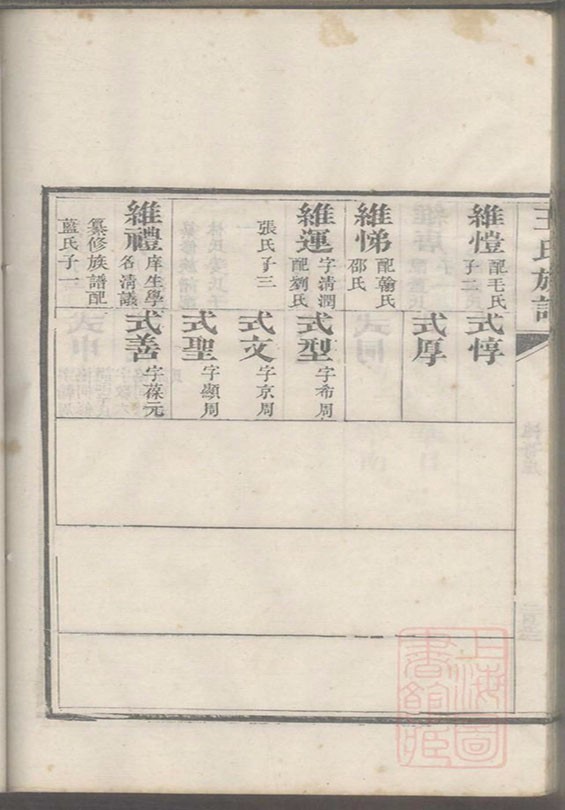 王氏族譜
維愷 配毛氏
子二
維悌 配翰氏
邵氏
維運 字清潤
配劉氏
張氏子三
維禮 庠生學
名清議
纂修族譜配
藍氏子一
式惇
式厚
式型 字布周
式文 字京周
式聖 字顯周
式善 字葆元
上海圖
書館藏